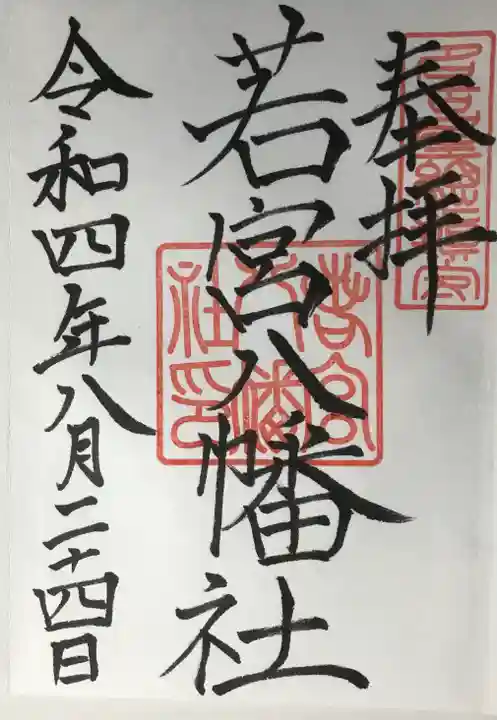 奉拝
若宮八幡社
令和四年八月二十四日
若宮八幡社印